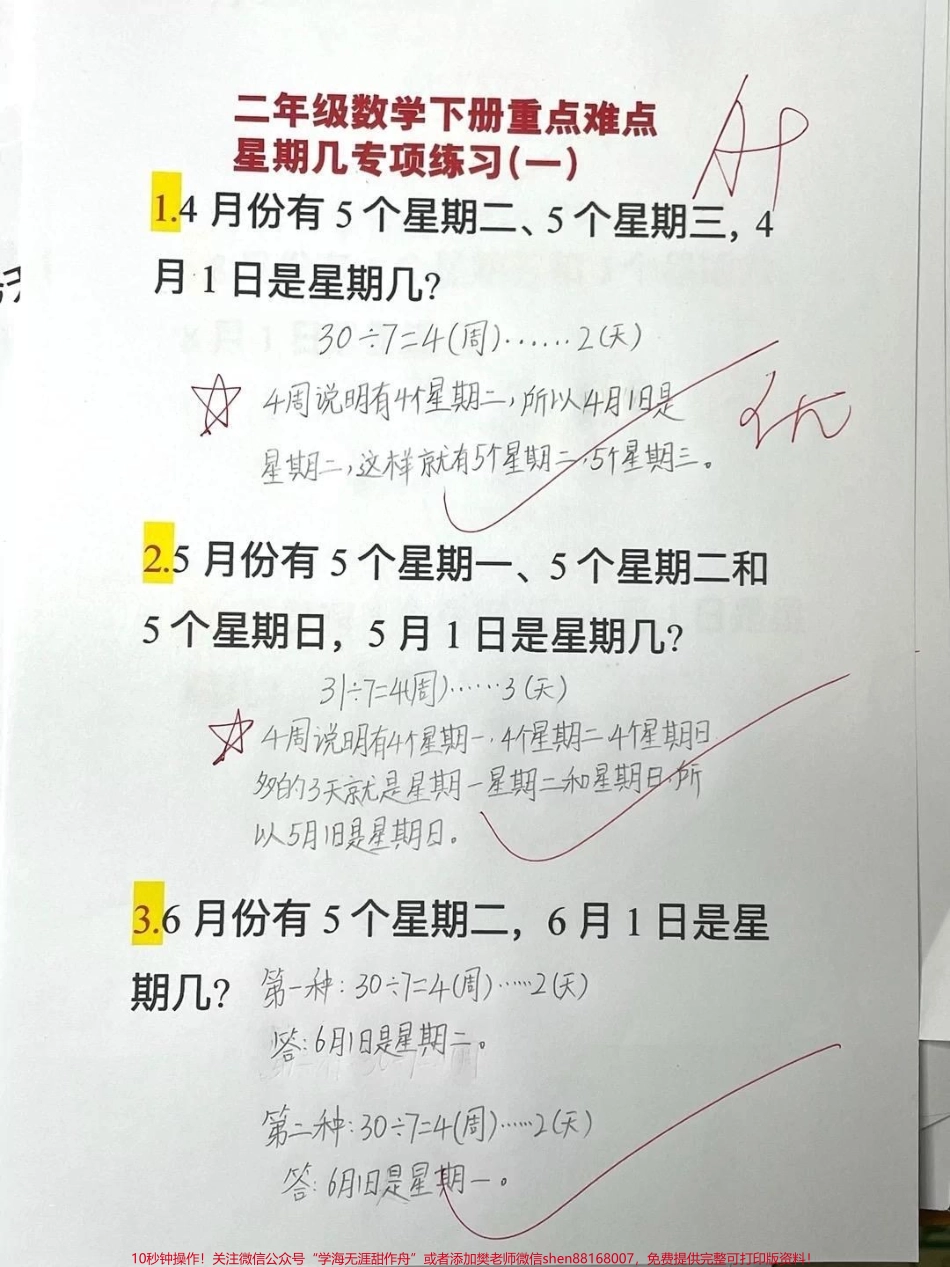 二年级数学下册重点难点
星期几专项练习(一)
1.4 月份有 5 个星期二、5 个星期三，4
月 1 日是星期几?
30÷7=4(周)……2(天)
4周说明有4个星期二,所以4月1日是
星期二,这样就有5个星期二,5个星期三。
优
2.5 月份有 5 个星期一、5 个星期二和
5 个星期日，5 月 1 日是星期几?
31÷7=4(周)……3(天)
4周说明有4个星期一,4个星期二4个星期日
多的3天就是星期一星期二和星期日,所
以5月1日是星期日。
3.6 月份有 5 个星期二，6 月 1 日是星
期几?
第一种:30÷7=4(周)……2(天)
答:6月1日是星期二。
第二种:30÷7=4(周)……2(天)
答:6月1日是星期一。
10秒钟操作！关注微信公众号“学海无涯甜作舟”或者添加樊老师微信shen88168007，免费提供完整可打印版资料！